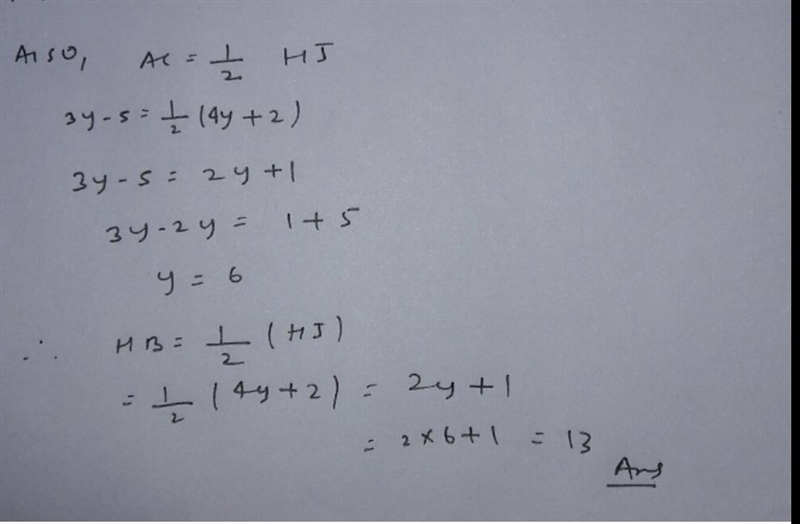 Also, AC = 1/2 HJ
3y - 5 = 1/2 (4y + 2)
3y - 5 = 2y + 1
3y - 2y = 1 + 5
y = 6
∴ HB = 1/2 (HJ)
= 1/2 (4y + 2) = 2y + 1
= 2 × 6 + 1 = 13
Ans